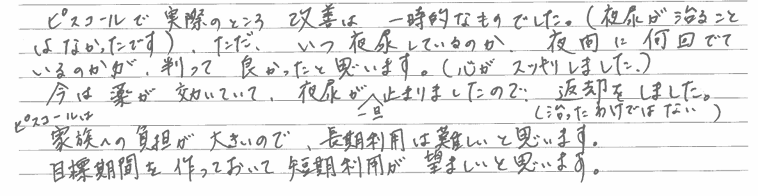 ピスコールで実際のところ 改善は 一時的なものでした。(夜尿が治ること
はなかったです)、ただ、いつ夜尿しているのか、夜間に何回でて
いるのかが、判って良かったと思います。(心がスッキリしました。)
今は薬が効いていて、夜尿が一旦止まりましたので、返却をしました。
(治ったわけではない)
ピスコールは
家族への負担が大きいので、長期利用は難しいと思います。
目標期間を作っておいて短期利用が望ましいと思います。